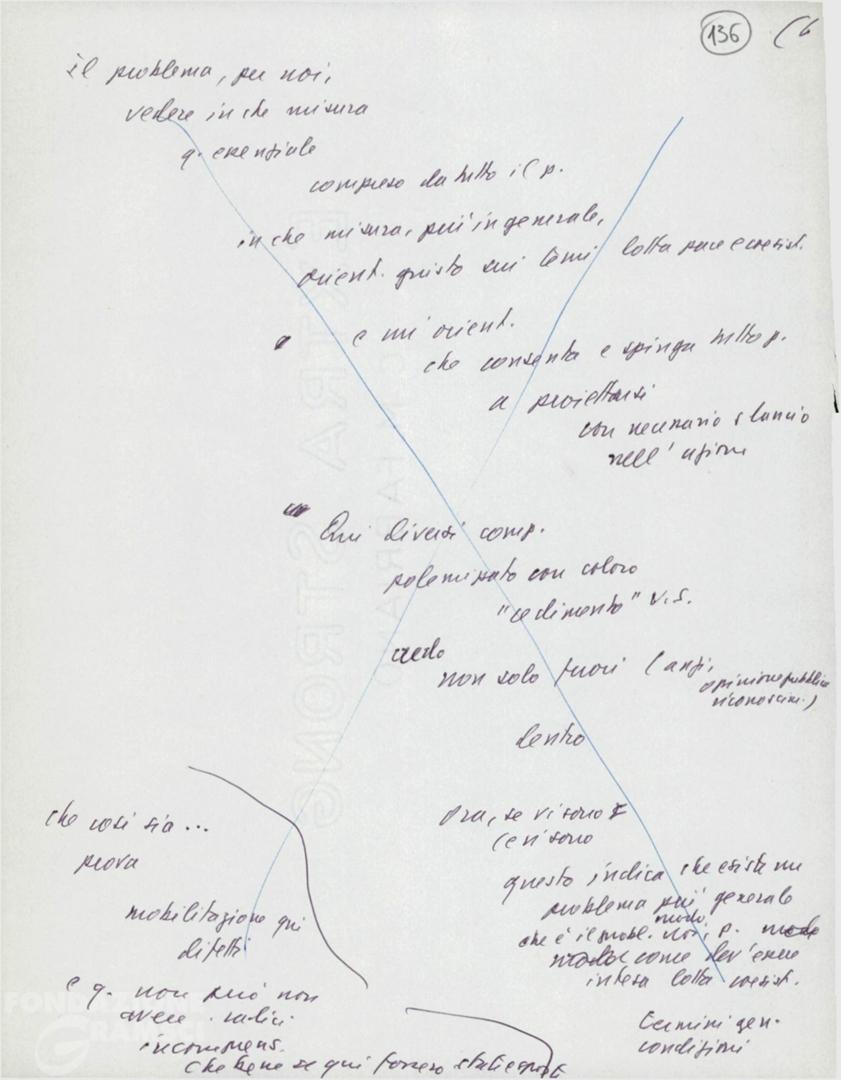 136 (6
il problema, per noi,
vedere in che misura
q. essenziale
compreso da tutto il p.
in che misura, più in generale,
orient. giusto sui temi lotta pace e coesist.
e un orient.
che consenta e spinga tutto p.
a proiettarsi
con necessario slancio
nell'azione
Qui diversi comp.
polemizzato con coloro
"cedimento" V.S.
credo
non solo fuori (anzi,
opinione pubblica
riconoscim.)
dentro
Ora, se vi sono
(e vi sono
questo indica che esiste un
problema più generale
modo
che è il probl. noi, p.
come dev'essere
intesa lotta coesist.
termini gen.
condizioni
che così sia...
prova
mobilitazione qui
difetti
e q. non può non
avere radici
incomprens.
che bene se qui fossero state
FONDAZIONE
GRAMSCI
EXTRA STRONG